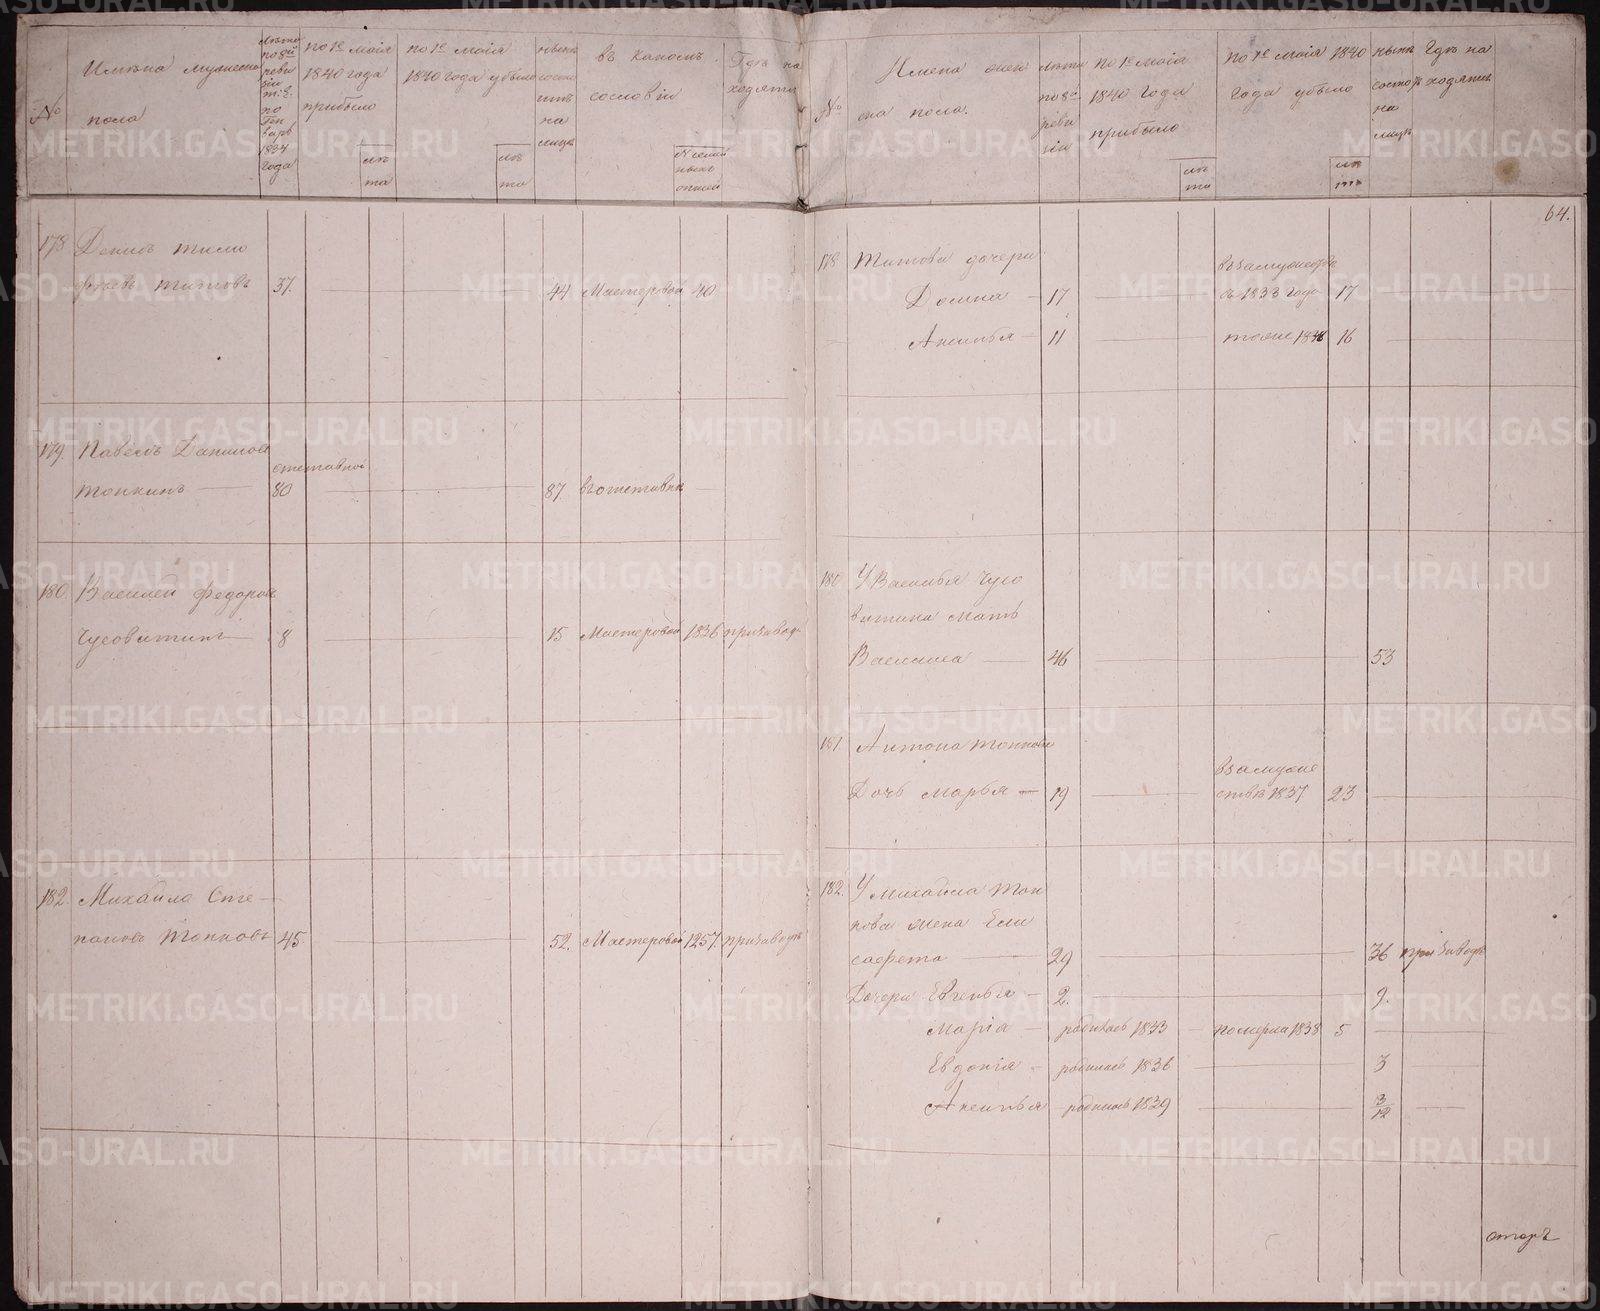 №
Имена мужеска
пола
Лѣта
по 8й
реви
зіи
по
Ген
варь
1834
года
по 1е маія
1840 года
прибыло
лѣ
та
по 1е маія
1840 года убыло
лѣ
та
нынѣ
состо
итъ
на
лицо
въ какомъ
сословіи
Гдѣ на
ходятся
178
Денисъ Тимо
фѣевъ Титовъ 37. 44 Мастеровой 40
179. Павелъ Даниловъ
отставной
Топкинъ 80 87. в отставкѣ
180. Василей Федоровъ
Чусовитинъ 8 15 Мастеровой 1836 при заводѣ
182. Михайла Сте
пановъ Топковъ 45 52. Мастеровой 1257. при заводѣ
№
Имена жен
ска пола.
Лѣта
по 8й
реви
зіи
по 1е маія
1840 года
прибыло
лѣ
та
по 1е маія 1840
года убыло
лѣ
та
нынѣ
состоитъ
на
лицо
Гдѣ на
ходятся
64.
178 Титова дочери
Домна 17 въ замужествѣ
съ 1833 года 17
Аксинья 11 тоже 1838 16
180 У Василья Чусо
витина мать
Василиса 46 53
181. Антона Топкова
Дочь Марья 19 в замуже
ствѣ 1837 23
182. У Михайла Топ
кова жена Ели
савета 29 36 при заводѣ
Дочери Евгенья 2. 9.
Марія родилась 1833 померла 1838 5
Евдокія родилась 1836 3
Аксинья родилась 1839 3/12
METRIKI.GASO-URAL.RU